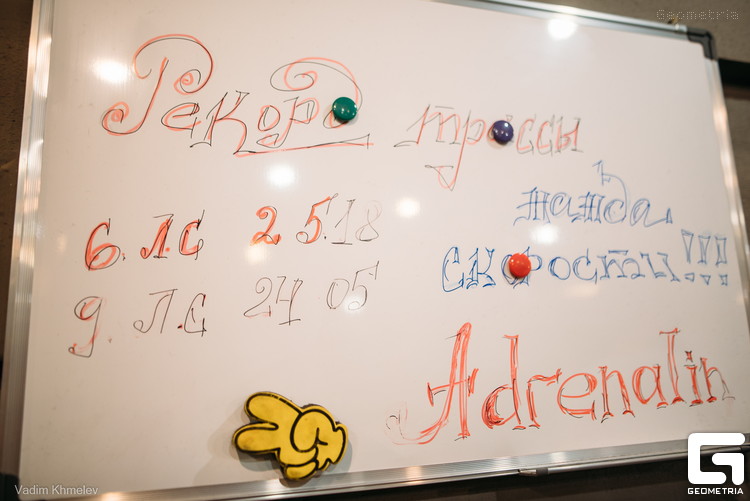 Geometria
Рекорд трассы
6. ЛС 25.18
9. Л.С 24 05
жажда
скорости!!!
Adrenalin
Vadim Khmelev
GEOMETRIA